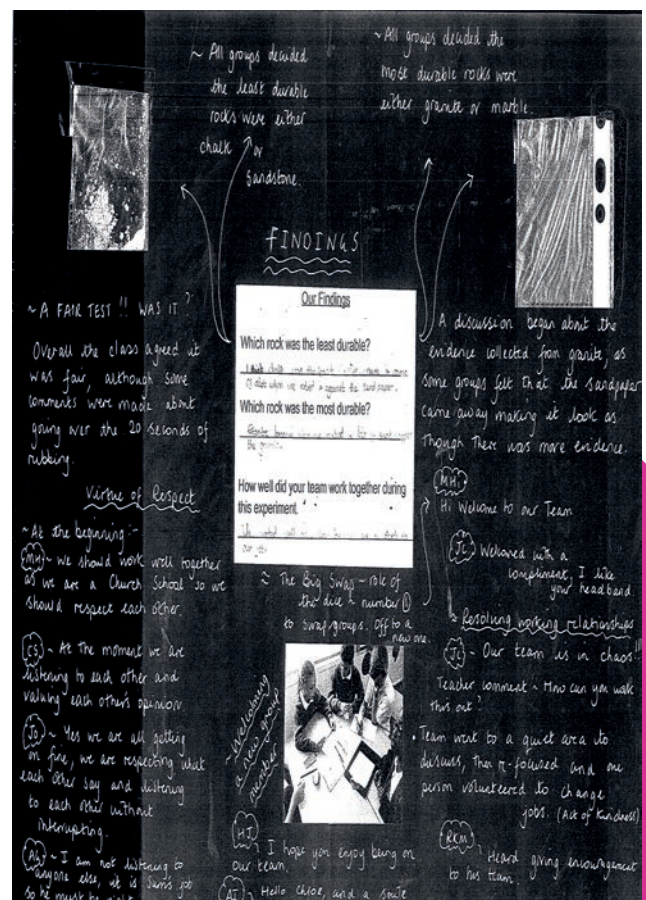 ~ All groups decided
the least durable
rocks were either
chalk or
sandstone.
~ All groups decided the
most durable rocks were
either granite or marble.
FINDINGS
Our Findings
Which rock was the least durable?
Which rock was the most durable?
How well did your team work together during
this experiment.
~ A FAIR TEST!! WAS IT?
Overall the class agreed it
was fair, although some
comments were made about
going over the 20 seconds of
rubbing.
Virtue of Respect
~ At the beginning:-
MH ~ We should work well together
as we are a Church School so we
should respect each other.
CS ~ At the moment we are
listening to each other and
valuing each others opinion.
Jo ~ Yes we are all getting
on fine, we are respecting what
each other say and listening
to each other without
interrupting.
~ I am not listening to
anyone else, it is Sam's job
so he must be right
~ The Big Swap - role of
the dice ~ number ①
to swap groups. Off to a
new one.
Welcoming
a new group
member
HJ
I hope you enjoy being on
our team.
AI Hello Chloe, and a smile
A discussion began about the
evidence collected from granite, as
some groups felt that the sandpaper
came away making it look as
though there was more evidence.
MH
Hi Welcome to our Team
Welcomed with a
compliment, I like
your headband.
~ Resolving working relationships
~ Our team is in chaos!!!
Teacher comment ~ How can you work
this out?
Team went to a quiet area to
discuss, then re-focused and one
person volunteered to change
jobs. (Act of Kindness)
RKM ~ Heard giving encouragement
to his team.